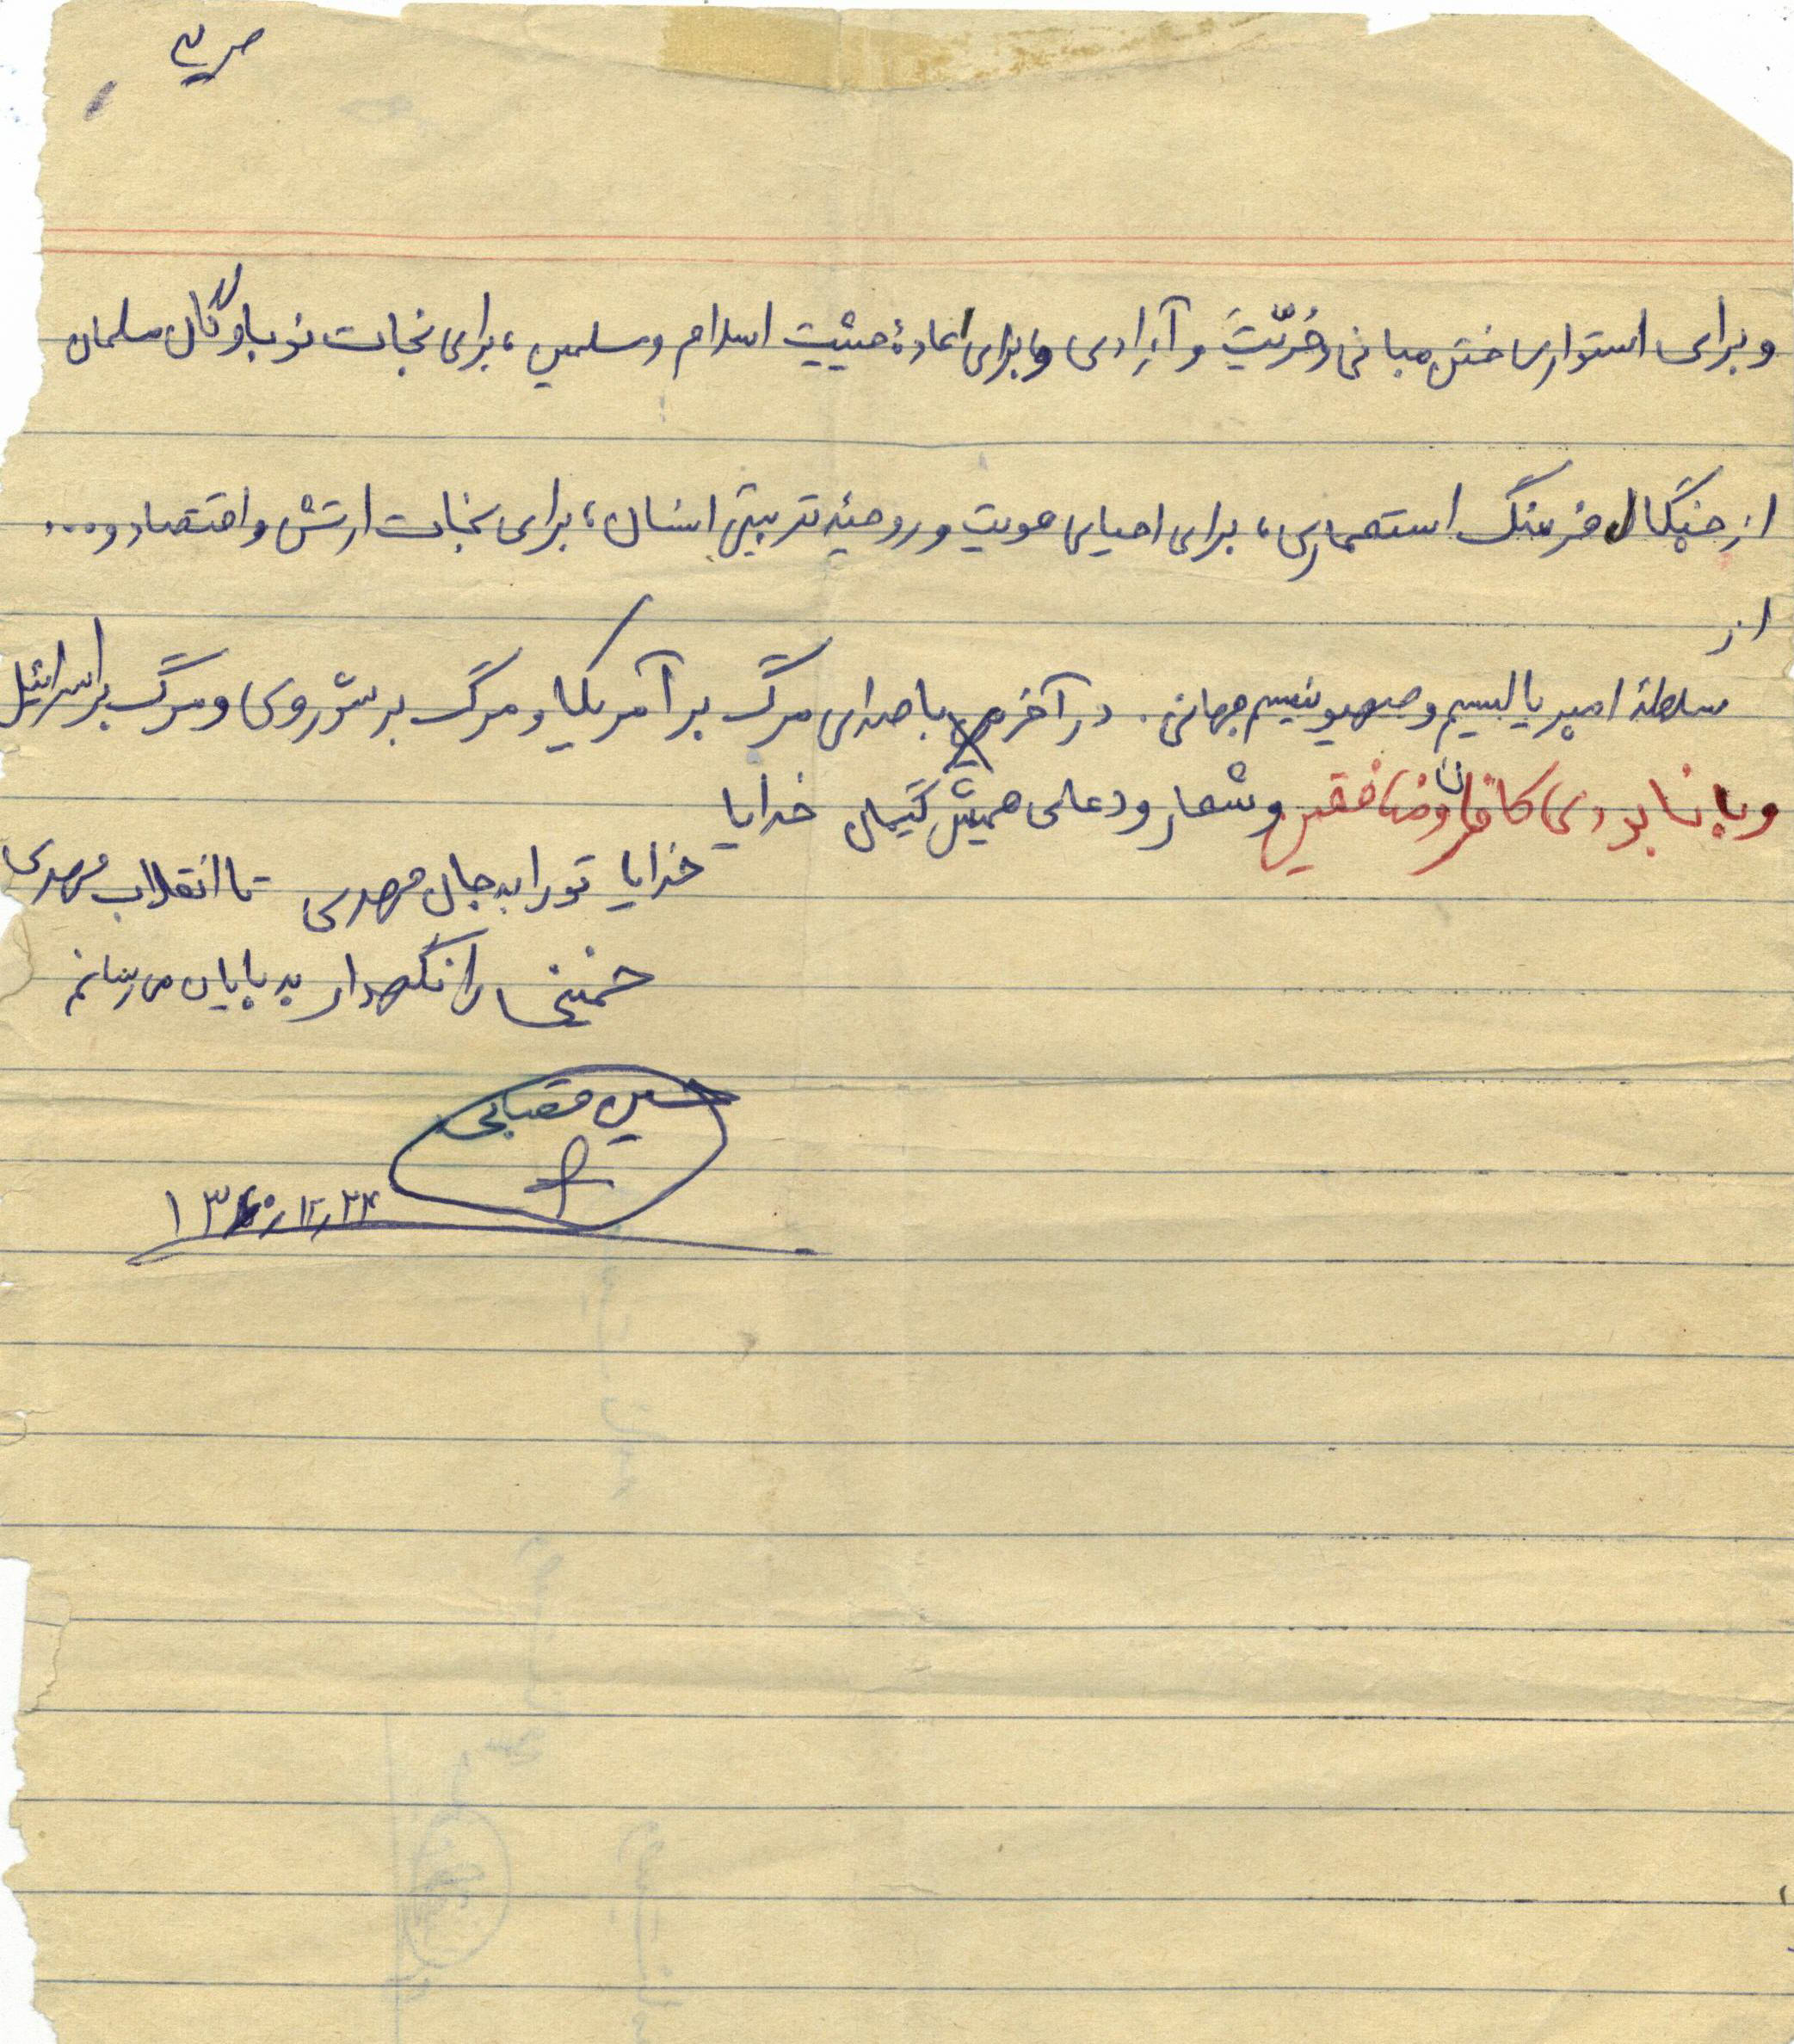 ص ۳
و برای استوار ساختن مبانی حُرّیّتَ و آزادی و برای اعادهٔ حیثیت اسلام و مسلمین، برای نجات نوباوگان مسلمان
از چنگال فرهنگ استعماری، برای احیای هویت و روحیهٔ تربیتی انسان، برای نجات ارتش و اقتصاد و...
از
سلطهٔ امپریالیسیم و صهیونیسیم جهانی. در آخر با صدای مرگ بر آمریکا و مرگ بر شوروی و مرگ بر اسرائیل
و با نابودی کافران و منافقین و شعار و دعای همیشگیمان خدایا
خدایا تو را به جان مهدی تا انقلاب مهدی
خمینی را نگهدار به پایان می‌رسانم
حسین
۱۳۶۰/۱۲/۲۴